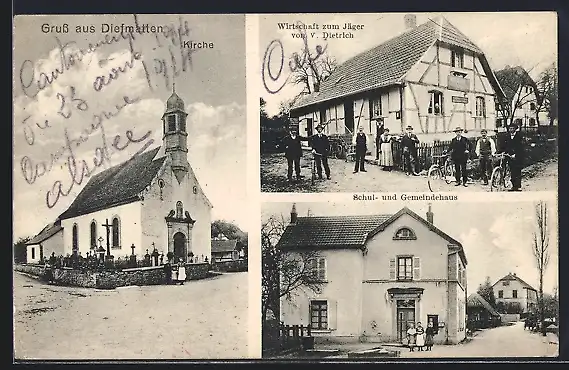 Gruß aus Diefmatten
Kirche
Cantonnement
du 23 août 1914
campagne
alsace
Wirtschaft zum Jäger
von V. Dietrich
Cafe
Schul- und Gemeindehaus